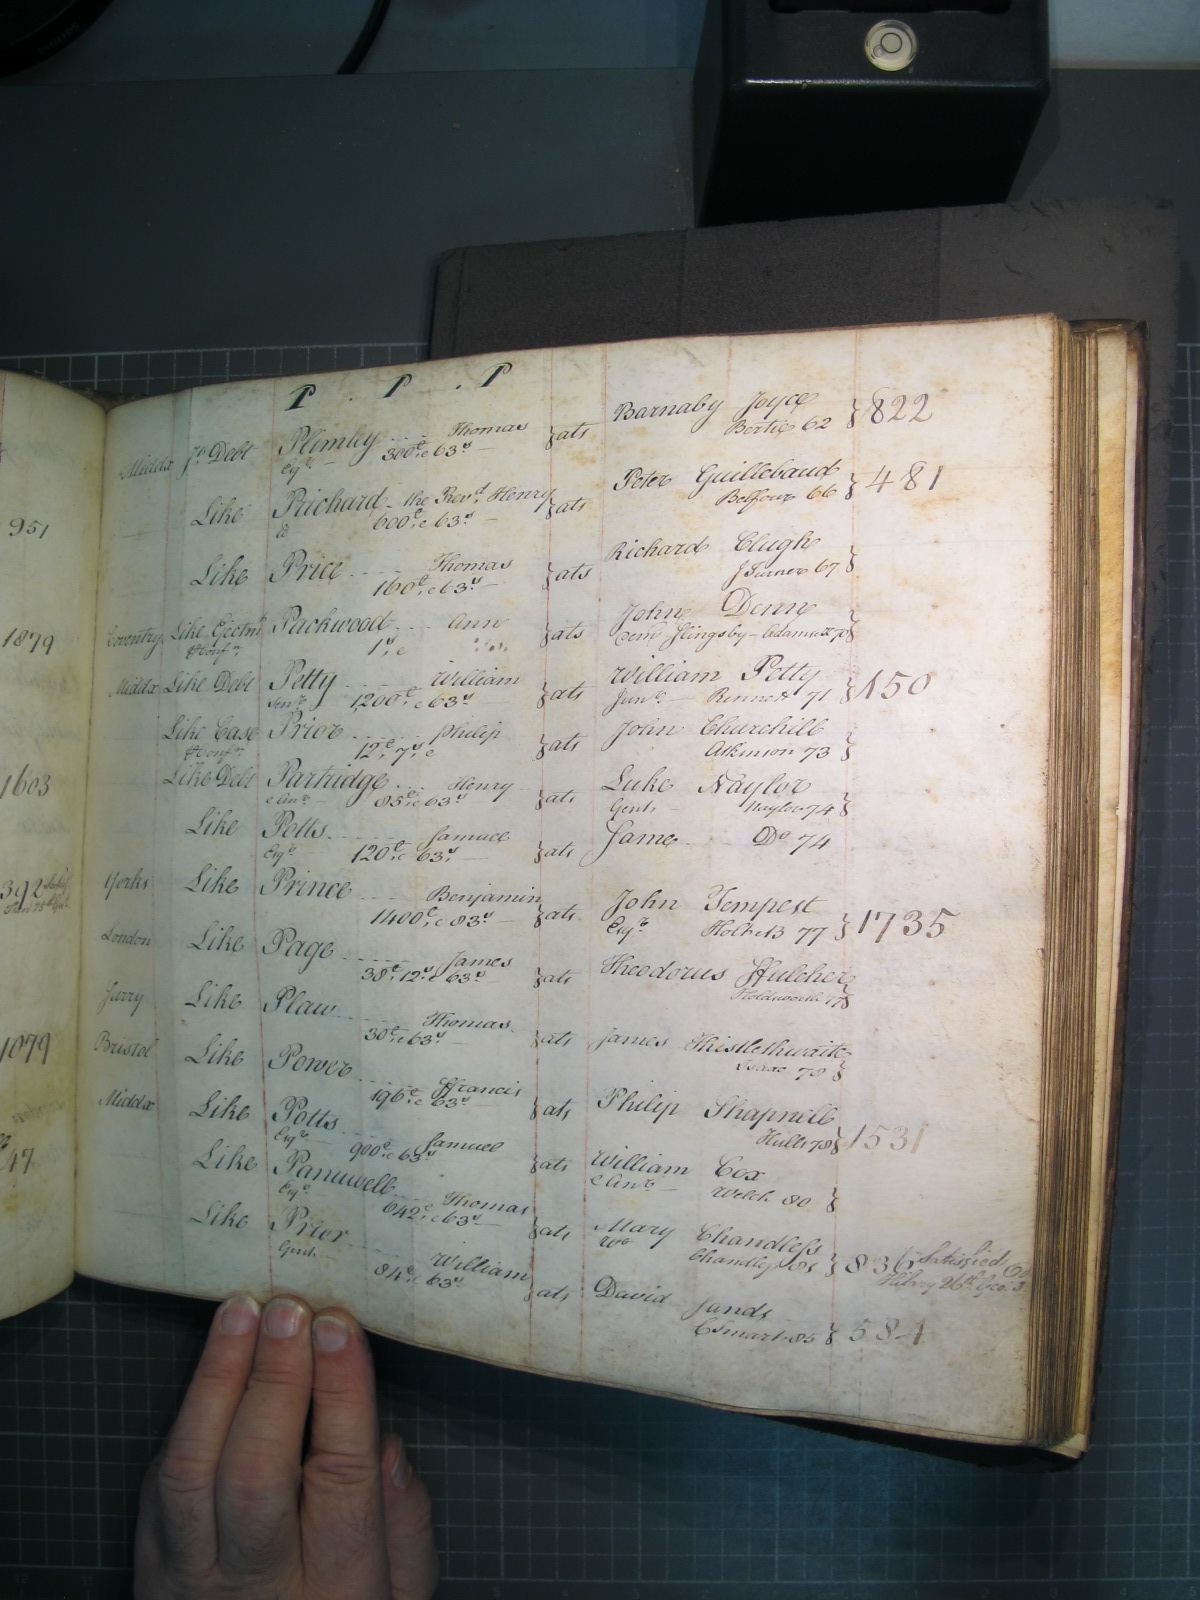 P . P . P
951
1879
1603
392
1079
47
Middx Jt. Debt Plimley .... Thomas } ats Barnaby Joyce } 822
Esqr. 300£,, & 63s — Bertie 62
Like Prichard - the Revd. Henry } ats Peter Guillebaud } 481
600£,, & 63s — Belfour 66
Like Price .... Thomas } ats Richard Clugh }
160£,, & 63s J Turner 67
Coventry Like Ejectmt Packwood .... Ann } ats John Denn }
Confn. 1s,, & dem Slingsby - Adams 70
Middx Like Debt Petty .... William } ats William Petty } 150
Senr. 1200£,, & 63s Junr. — Bennett 71
Like Case Prior .... Philip } ats John Churchill }
Confn. 12£,, 7s,, & Atkinson 73
Like Debt Partridge .... Henry } ats Luke Naylor }
85£,, & 63s Gent. Naylor 74
Like Potts .... Samuel } ats Same .... Do 74
Esqr. 120£,, & 63s —
Yorks Like Prince .... Benjamin } ats John Tempest } 1735
1400£,, & 83s Esqr. 77
London Like Page .... James } ats Theodorus Ffulcher }
38£,, 12s,, & 63s Holdsworth 77
Surry Like Plaw .... Thomas } ats James Thistlethwaite }
30£,, & 63s Isaac 78
Bristol Like Power .... Ffrancis } ats Philip Shapnell } 1531
196£,, & 63s Hulls 78
Middx Like Potts .... Samuel } ats William Cox }
Esqr. 900£,, & 63s Welch 80
Like Panuwell .... Thomas } ats Mary Chandless } 836 Satisfied
Esqr. 642£,, & 63s Wo Chandless 81 Hilary 26th Geo. 3
Like Prior .... William } ats David Sands } 584
Gent. 84£,, & 63s C Smart 85